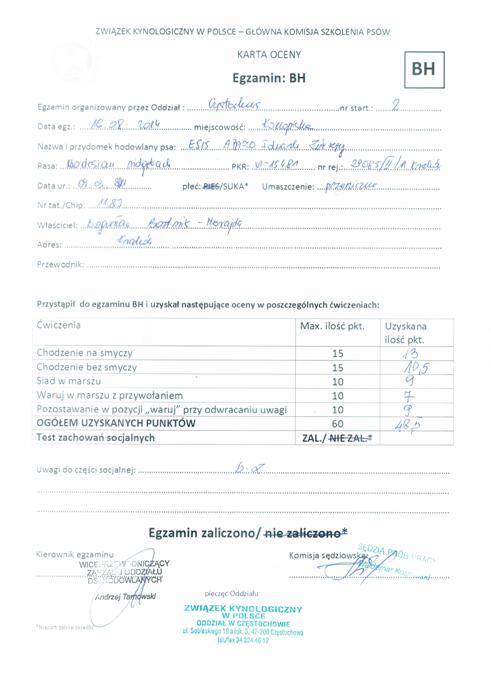 ZWIĄZEK KYNOLOGICZNY W POLSCE – GŁÓWNA KOMISJA SZKOLENIA PSÓW
KARTA OCENY
Egzamin: BH
BH
Egzamin organizowany przez Oddział : nr start : 2
Data egz.: 16.08.2014 miejscowość: Konopiska
Nazwa i przydomek hodowlany psa: ESIS
Rasa: Rhodesian ridgeback PKR: VI-15481 nr rej.: 29085/II/A Kraków
Data ur.: płeć: PIES/SUKA* Umaszczenie: pszeniczne
Nr tat./Chip: 1187
Właściciel:
Adres: Kraków
Przewodnik:
Przystąpił do egzaminu BH i uzyskał następujące oceny w poszczególnych ćwiczeniach:
Ćwiczenia Max. ilość pkt. Uzyskana ilość pkt.
Chodzenie na smyczy 15 13
Chodzenie bez smyczy 15 10,5
Siad w marszu 10 9
Waruj w marszu z przywołaniem 10 7
Pozostawanie w pozycji „waruj” przy odwracaniu uwagi 10 9
OGÓŁEM UZYSKANYCH PUNKTÓW 60 48,5
Test zachowań socjalnych ZAL./ NIE ZAL.*
Uwagi do części socjalnej:
Egzamin zaliczono/ nie zaliczono*
Kierownik egzaminu Komisja sędziowska:
SĘDZIA PRÓB PRACY
Andrzej Tarnowski
pieczęć Oddziału
ZWIĄZEK KYNOLOGICZNY
W POLSCE
ODDZIAŁ W CZĘSTOCHOWIE
ul. Sobieskiego 19 a lok. 3, 42-200 Częstochowa
tel./fax 34 324 46 12
*Niepotrzebne skreślić